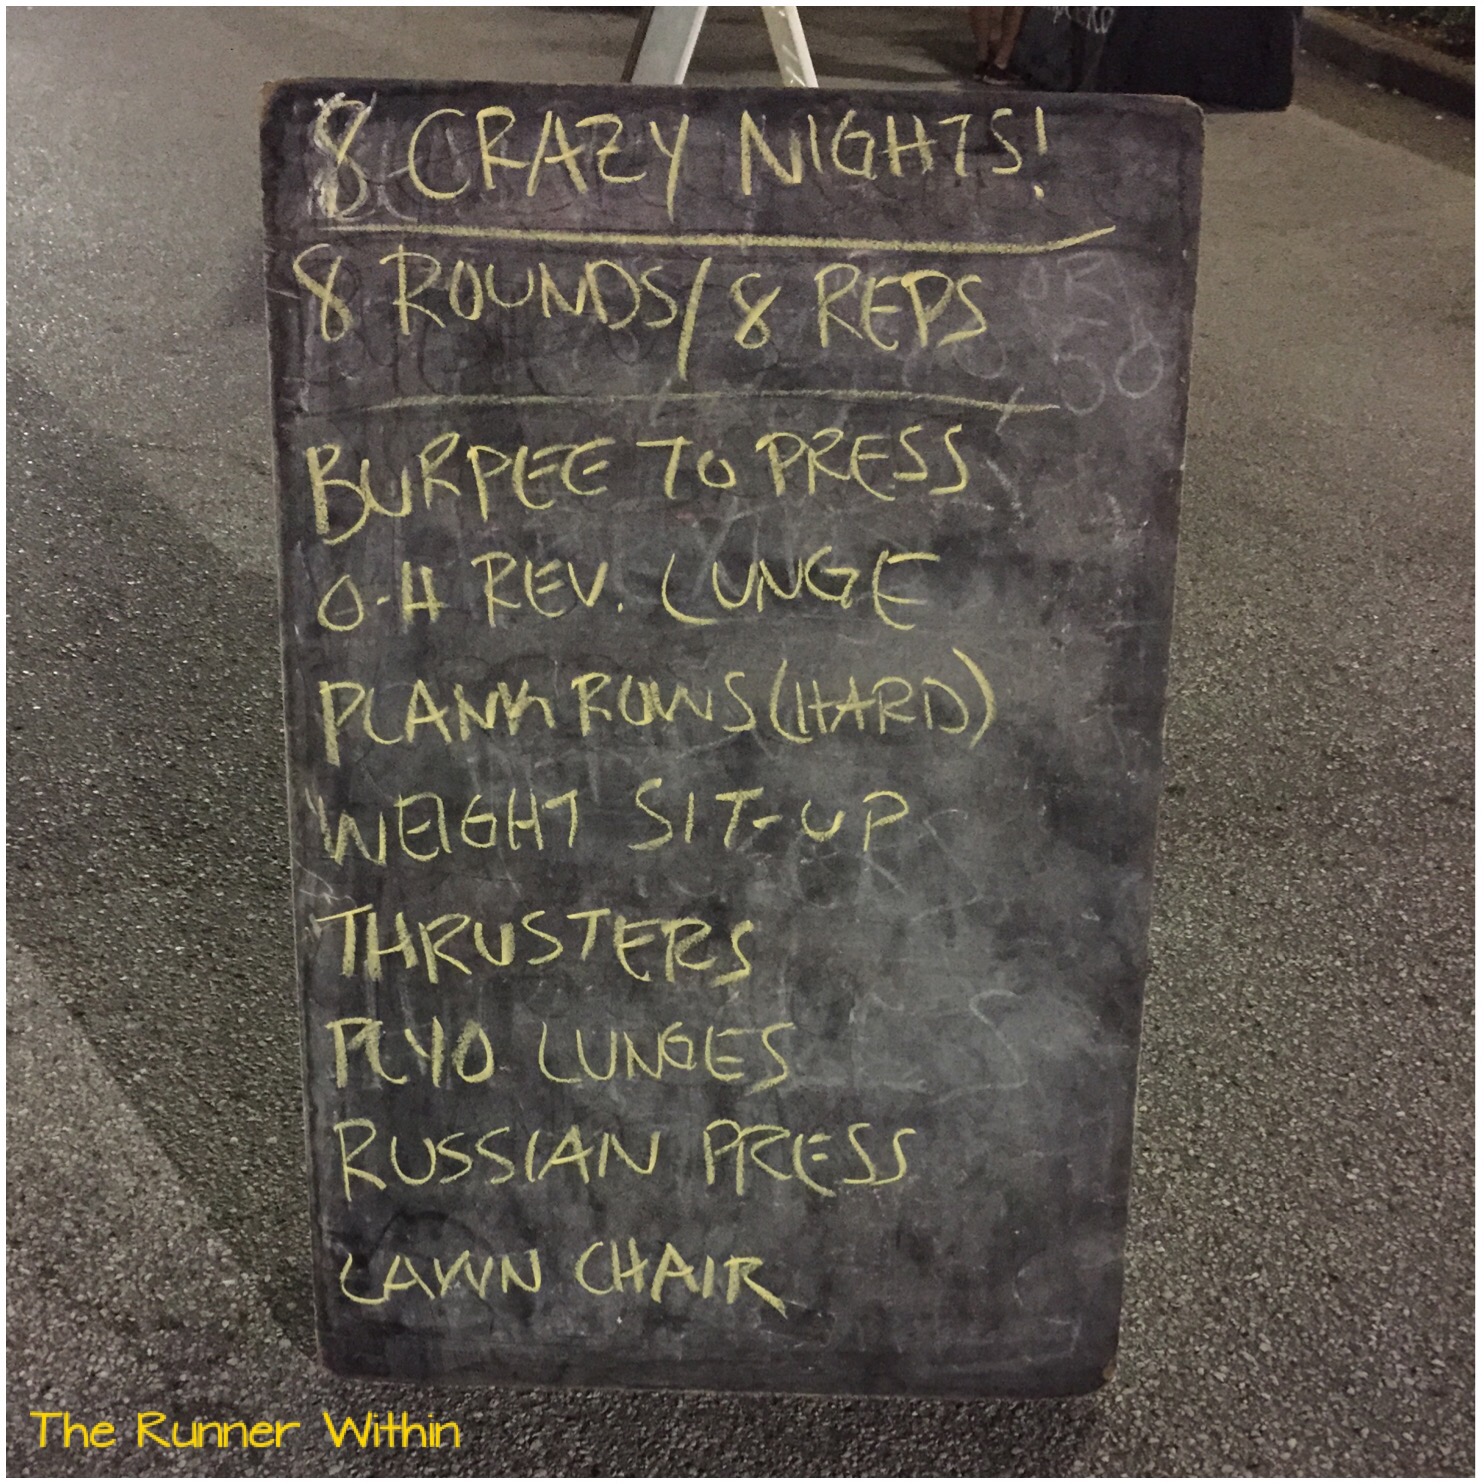 8 CRAZY NIGHTS!
8 ROUNDS/8 REPS
BURPEE TO PRESS
O-H REV. LUNGE
PLANK ROWS (HARD)
WEIGHT SIT-UP
THRUSTERS
PLYO LUNGES
RUSSIAN PRESS
LAWN CHAIR
The Runner Within